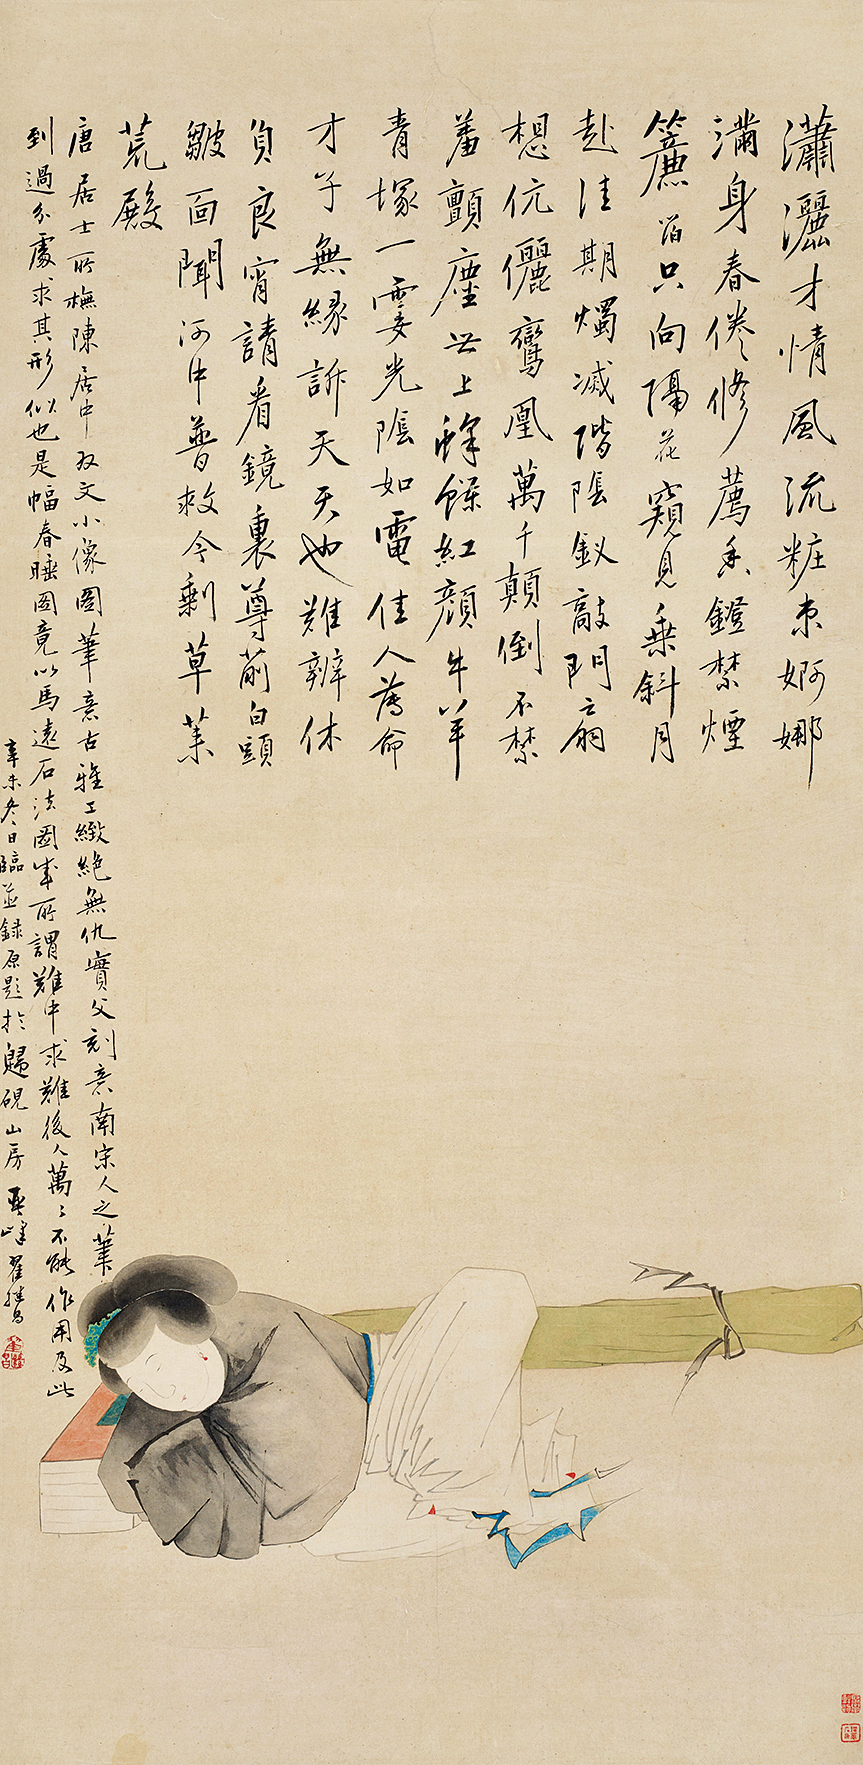 瀟灑才情風流粧束婀娜
滿身春倦修薦香鐙禁煙
簾箔只向隔花窺見乘斜月
赴佳期燭滅階陰釵敲門扇
想伉儷鸞凰萬千顛倒不禁
羞顫塵世上紅顏牛羊
青塚一霎光陰如電佳人薄命
才子無緣訴天天也難辨休
負良宵請看鏡裏尊前白頭
皺面聞河中普救今剩草萊
荒殿
唐居士所橅陳居中双文小像圖筆意古雅工緻絕無仇實父刻意南宋人之筆
到過分處求其形似也是幅春睡圖竟以馬遠石法圖成所謂難中求難後人萬萬不能作用及此
辛未冬日臨並錄原題於歸硯山房 翟繼昌